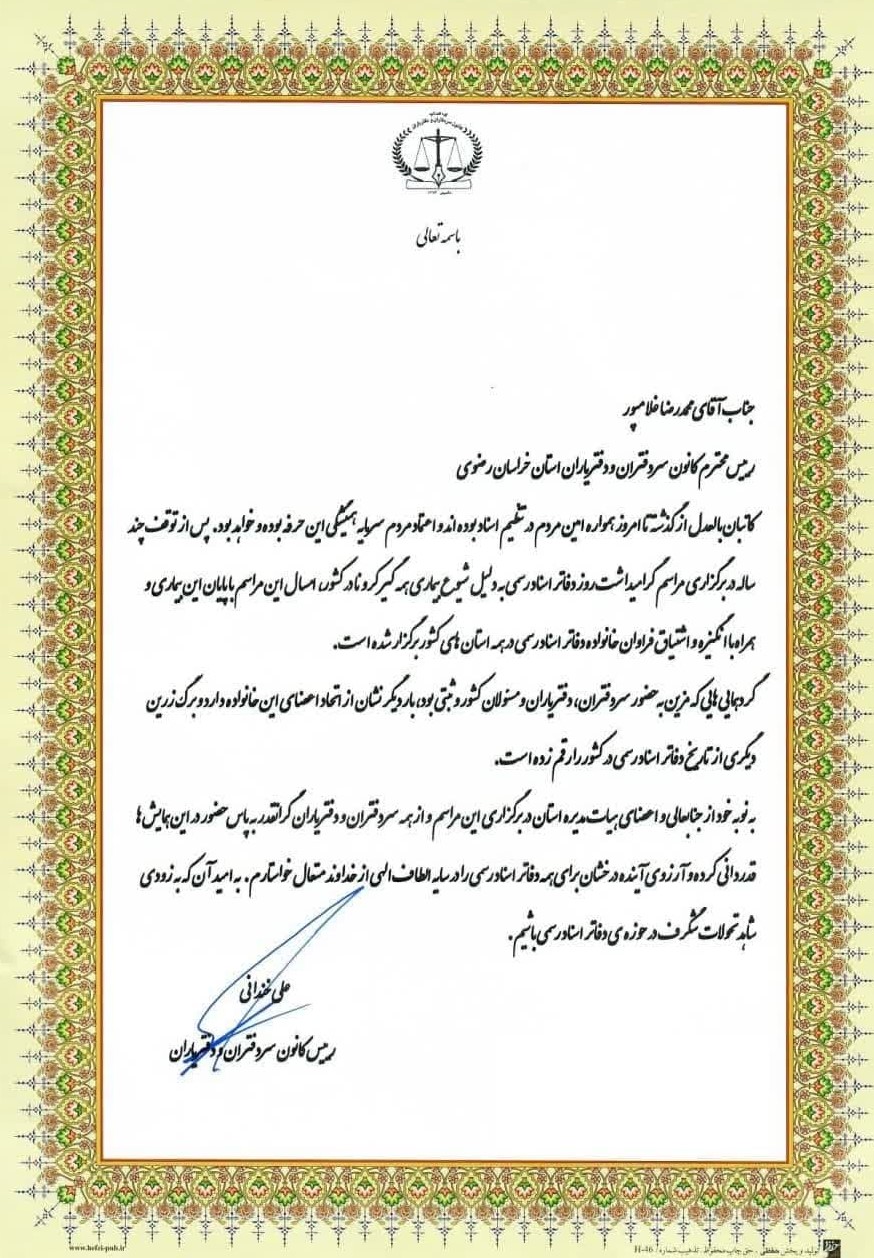 باسمه تعالی
جناب آقای محمدرضا غلامپور
رییس محترم کانون سردفتران و دفتریاران استان خراسان رضوی
کاتبان بالعدل از گذشته تا امروز همواره امین مردم در تنظیم اسناد بوده اند و اعتماد مردم سرمایه همیشگی این حرفه بوده و خواهد بود. پس از توقف چند
ساله در برگزاری مراسم گرامیداشت روز دفاتر اسناد رسمی به دلیل شیوع بیماری همه گیر کرونا در کشور، امسال این مراسم با پایان این بیماری و
همراه با انگیزه و اشتیاق فراوان خانواده دفاتر اسناد رسمی در همه استان های کشور برگزار شده است.
گردهمایی هایی که مزین به حضور سردفتران، دفتریاران و مسئولان کشور و ثبتی بود، بار دیگر نشان از اتحاد اعضای این خانواده دارد و برگ زرین
دیگری از تاریخ دفاتر اسناد رسمی در کشور را رقم زده است.
به نوبه خود از جنابعالی و اعضای هیات مدیره استان در برگزاری این مراسم و از همه سردفتران و دفتریاران گرانقدر به پاس حضور در این همایش ها
قدردانی کرده و آرزوی آینده درخشان برای همه دفاتر اسناد رسمی را در سایه الطاف الهی از خداوند متعال خواستارم. به امید آن که به زودی
شاهد تحولات شگرف در حوزه ی دفاتر اسناد رسمی باشیم.
علی خندانی
رییس کانون سردفتران و دفتریاران
www.hefzi-pub.ir
تولید و پخش حفظی - حق چاپ محفوظ. تذهیب شماره / H-46